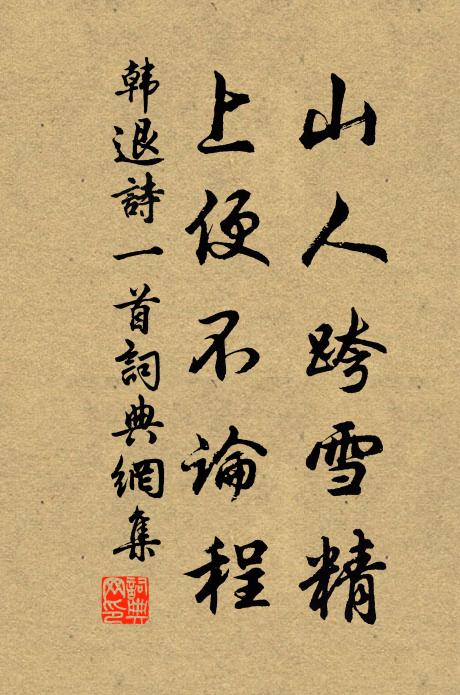 山人跨雪精
上便不論程
韩退詩一首詞典網集
詞典网印